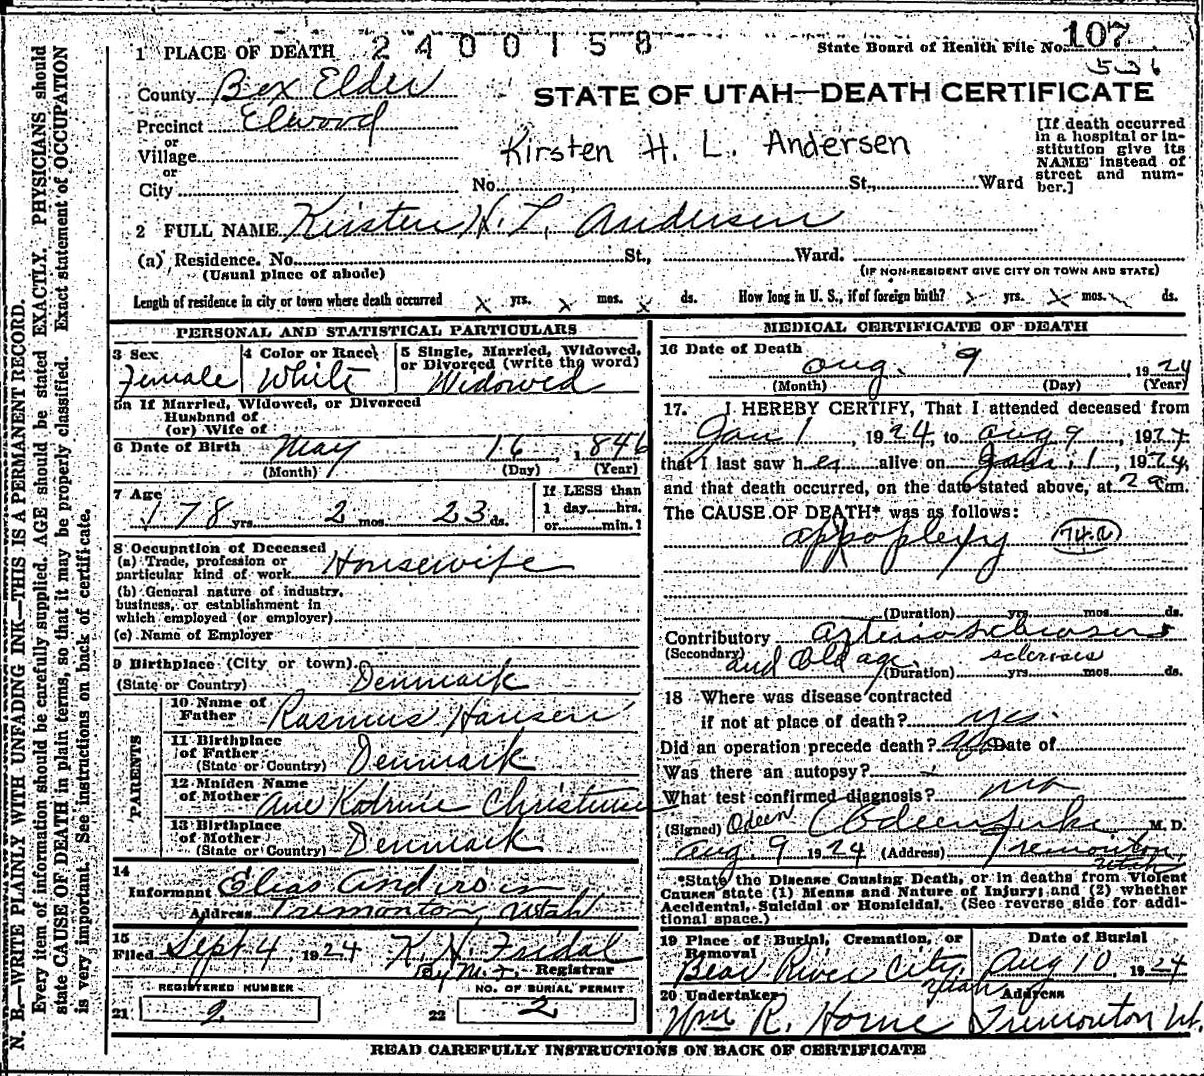 1 PLACE OF DEATH 2400158
State Board of Health File No. 107
County Box Elder
STATE OF UTAH—DEATH CERTIFICATE
Precinct Elwood
or
Village
or
City
Kirsten H. L. Andersen
No. St., Ward
[If death occurred
in a hospital or in-
stitution give its
NAME instead of
street and num-
ber.]
2 FULL NAME Kirsten H. L. Andersen
(a) Residence. No. St., Ward.
(Usual place of abode)
(IF NON-RESIDENT GIVE CITY OR TOWN AND STATE)
Length of residence in city or town where death occurred x yrs. x mos. x ds. How long in U. S., if of foreign birth? x yrs. x mos. x ds.
PERSONAL AND STATISTICAL PARTICULARS
3 Sex
Female
4 Color or Race
White
5 Single, Married, Widowed,
or Divorced (write the word)
Widowed
5a If Married, Widowed, or Divorced
Husband of
(or) Wife of
6 Date of Birth May 16, 1846
(Month) (Day) (Year)
7 Age
78 yrs. 2 mos. 23 ds.
If LESS than
1 day hrs.
or min.?
8 Occupation of Deceased
(a) Trade, profession or
particular kind of work Housewife
(b) General nature of industry,
business, or establishment in
which employed (or employer)
(c) Name of Employer
9 Birthplace (City or town)
(State or Country) Denmark
PARENTS
10 Name of
Father Rasmus Hansen
11 Birthplace
of Father
(State or Country) Denmark
12 Maiden Name
of Mother Ane Katrine Christensen
13 Birthplace
of Mother
(State or Country) Denmark
14
Informant Elias Andersen
Address Tremonton, Utah
15
Filed Sept 4, 1924 K H Fridal
By M. F. Registrar
REGISTERED NUMBER
21 2
NO. OF BURIAL PERMIT
22 2
MEDICAL CERTIFICATE OF DEATH
16 Date of Death
Aug. 9, 1924
(Month) (Day) (Year)
17. I HEREBY CERTIFY, That I attended deceased from
Jan 1, 1924, to Aug 9, 1924
that I last saw her alive on Jan 1, 1924,
and that death occurred, on the date stated above, at 2 a.m.
The CAUSE OF DEATH* was as follows:
appoplexy 74a
(Duration) yrs. mos. ds.
Contributory Arterio
(Secondary) and Old age. sclerosis
(Duration) yrs. mos. ds.
18 Where was disease contracted
if not at place of death? yes.
Did an operation precede death? Date of
Was there an autopsy?
What test confirmed diagnosis? no
(Signed) Odeen M. D.
Aug. 9 1924 (Address) Tremonton,
Utah
*State the Disease Causing Death, or in deaths from Violent
Causes state (1) Means and Nature of Injury; and (2) whether
Accidental, Suicidal or Homicidal. (See reverse side for addi-
tional space.)
19 Place of Burial, Cremation, or
Removal
Bear River City,
Utah
Date of Burial
Aug 10, 1924
20 Undertaker
Wm R. Horne
Address
Tremonton Ut.
READ CAREFULLY INSTRUCTIONS ON BACK OF CERTIFICATE
N. B.—WRITE PLAINLY WITH UNFADING INK—THIS IS A PERMANENT RECORD.
Every item of information should be carefully supplied. AGE should be stated EXACTLY. PHYSICIANS should
state CAUSE OF DEATH in plain terms, so that it may be properly classified. Exact statement of OCCUPATION
is very important. See instructions on back of certificate.